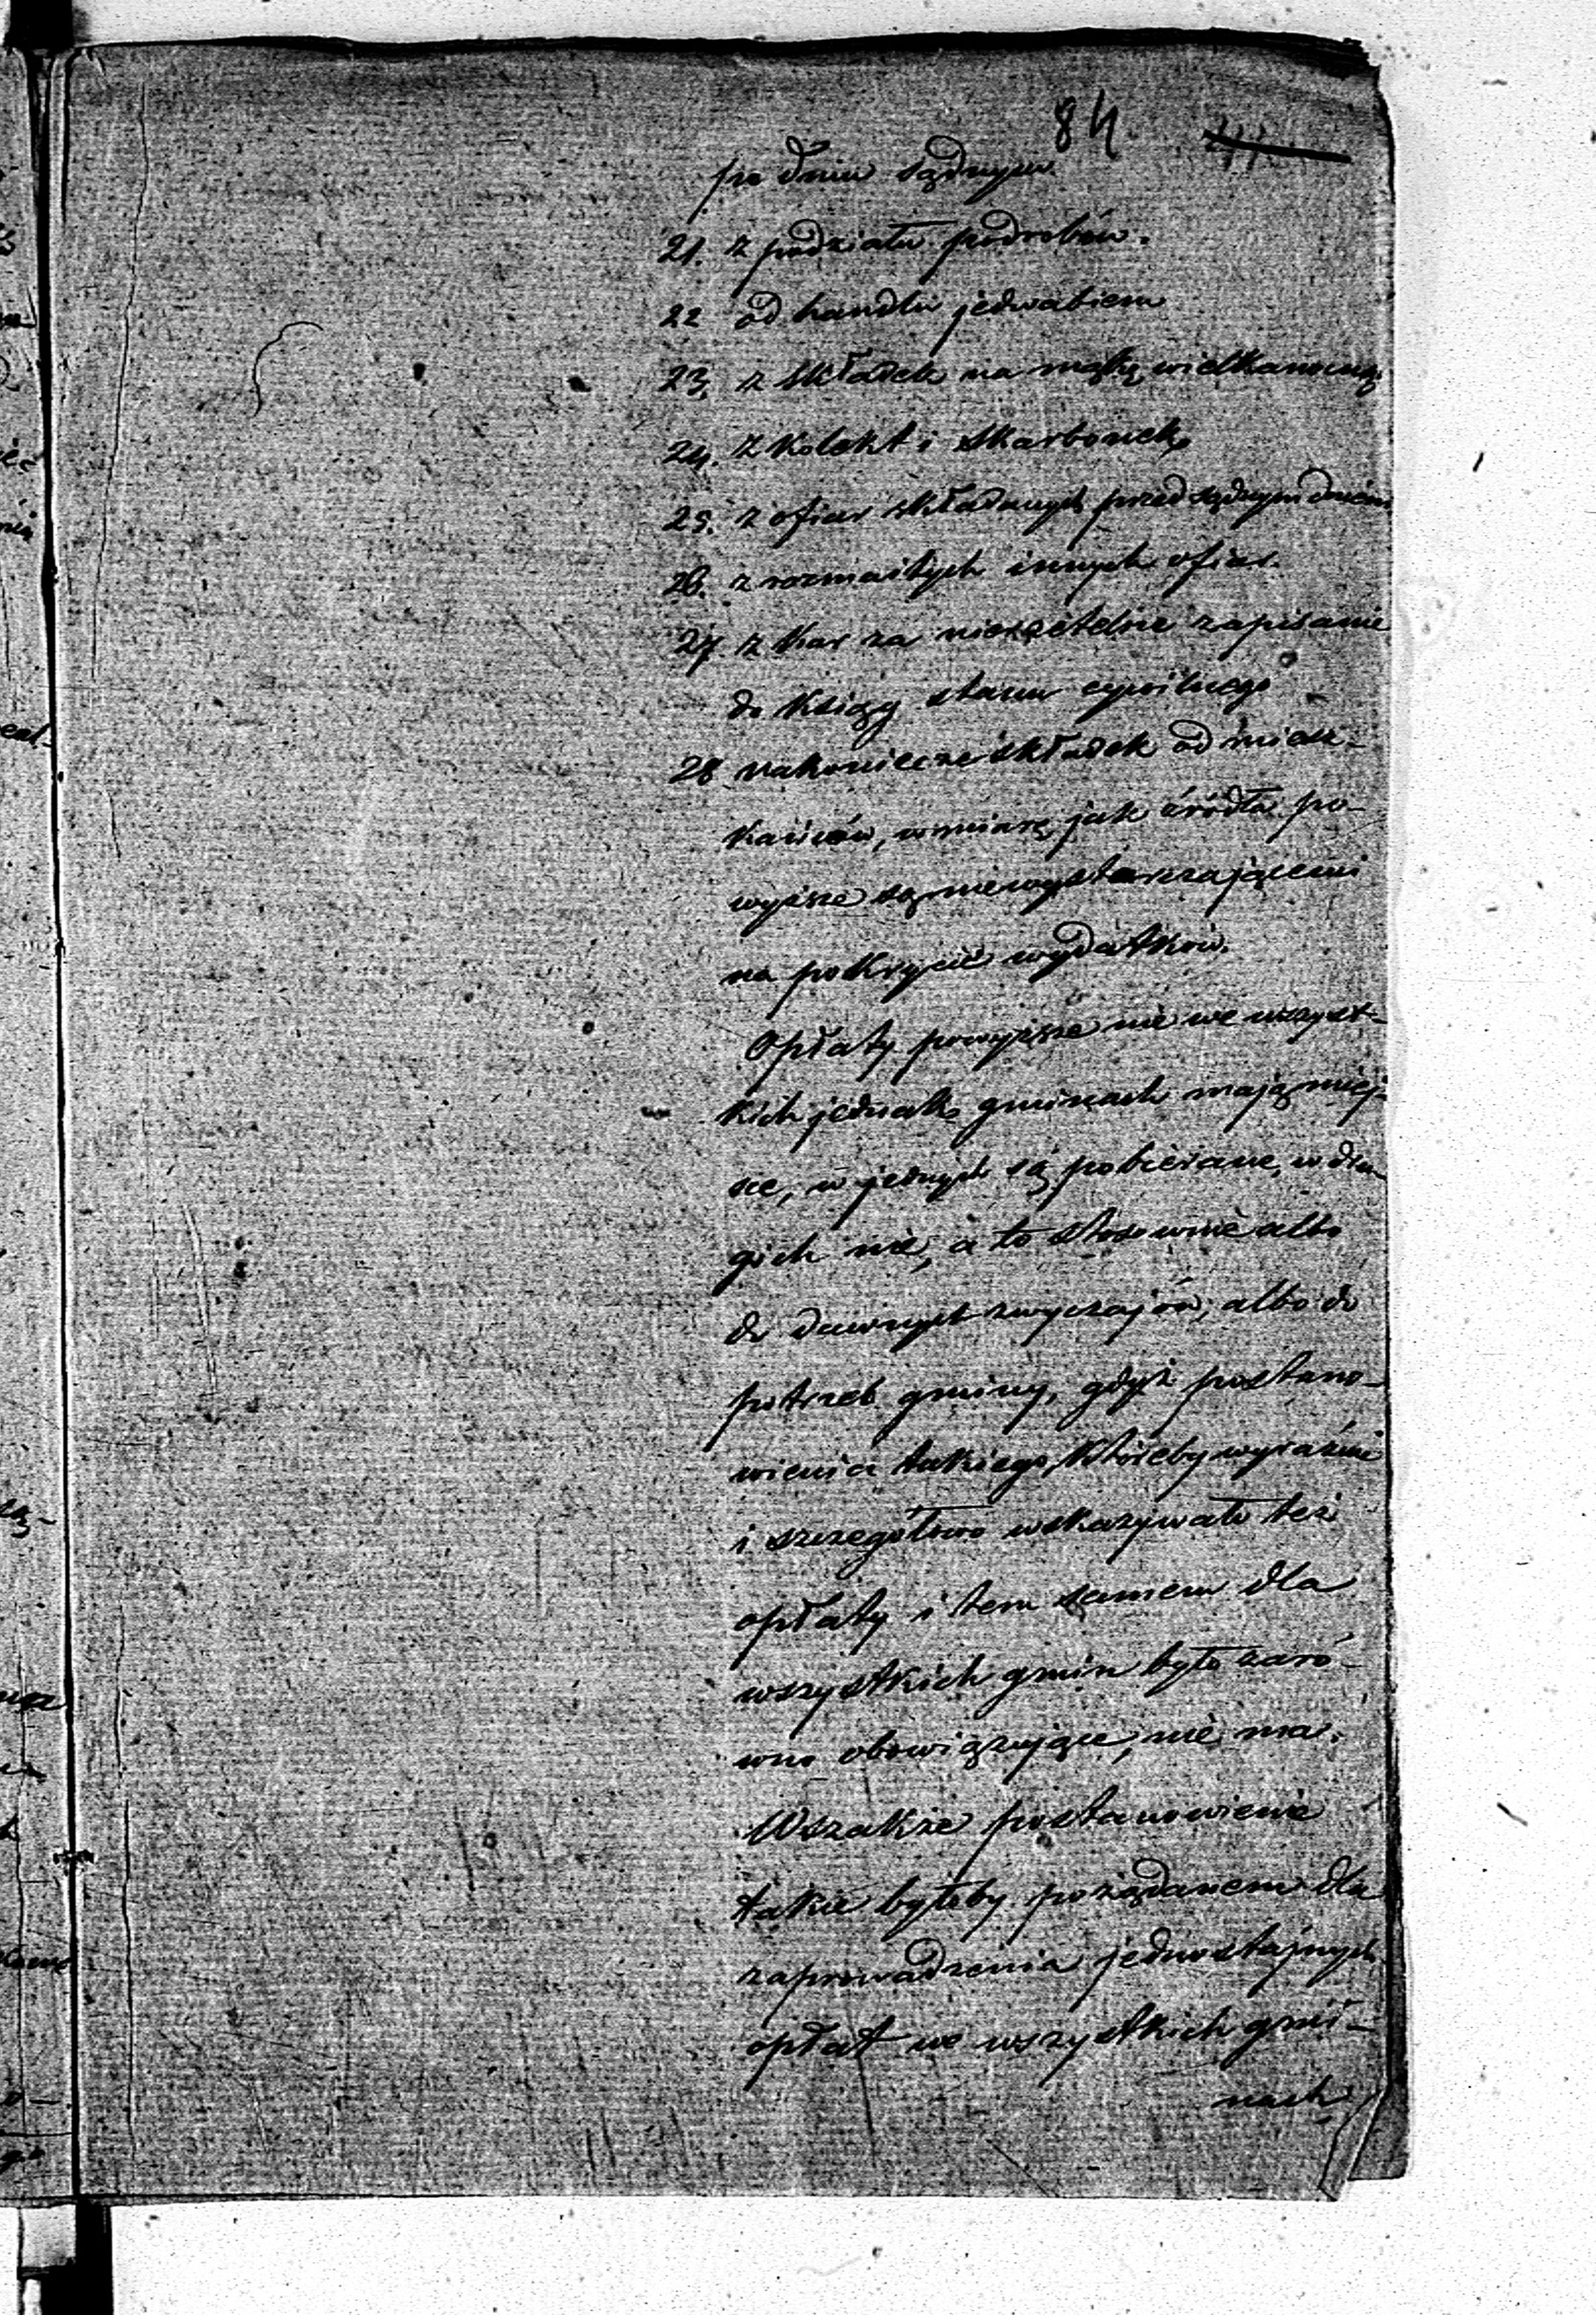 84
po dniu sądnym.
21. z podziału podrobów.
22 od handlu jedwabiem
23. z składek na mąkę wielkanocną
24. z kolekt i skarbonek
25. z ofiar składanych przed sądnym dniem
26. z rozmaitych innych ofiar.
27. z kar za nierzetelne zapisanie
do księgi stanu cywilnego
28 nakoniec ze składek od miesz-
kańców, w miarę jak źródła po-
wyższe są niewystarczającemi
na pokrycie wydatków.
Opłaty powyższe nie we wszyst-
kich jednak gminach mają miej-
sce, w jednych są pobierane, w dru
gich nie, a to stosownie albo
do dawnych zwyczajów, albo do
potrzeb gminy, gdyż postano-
wienia takiego, któreby wyraźnie
i szczegółowo wskazywało też
opłaty i tem samem dla
wszystkich gmin było zaró-
wno obowiązujące, nie ma.
Wszakże postanowienie
takie byłoby pożądanem dla
zaprowadzenia jednostajnych
opłat we wszystkich gmi-
nach